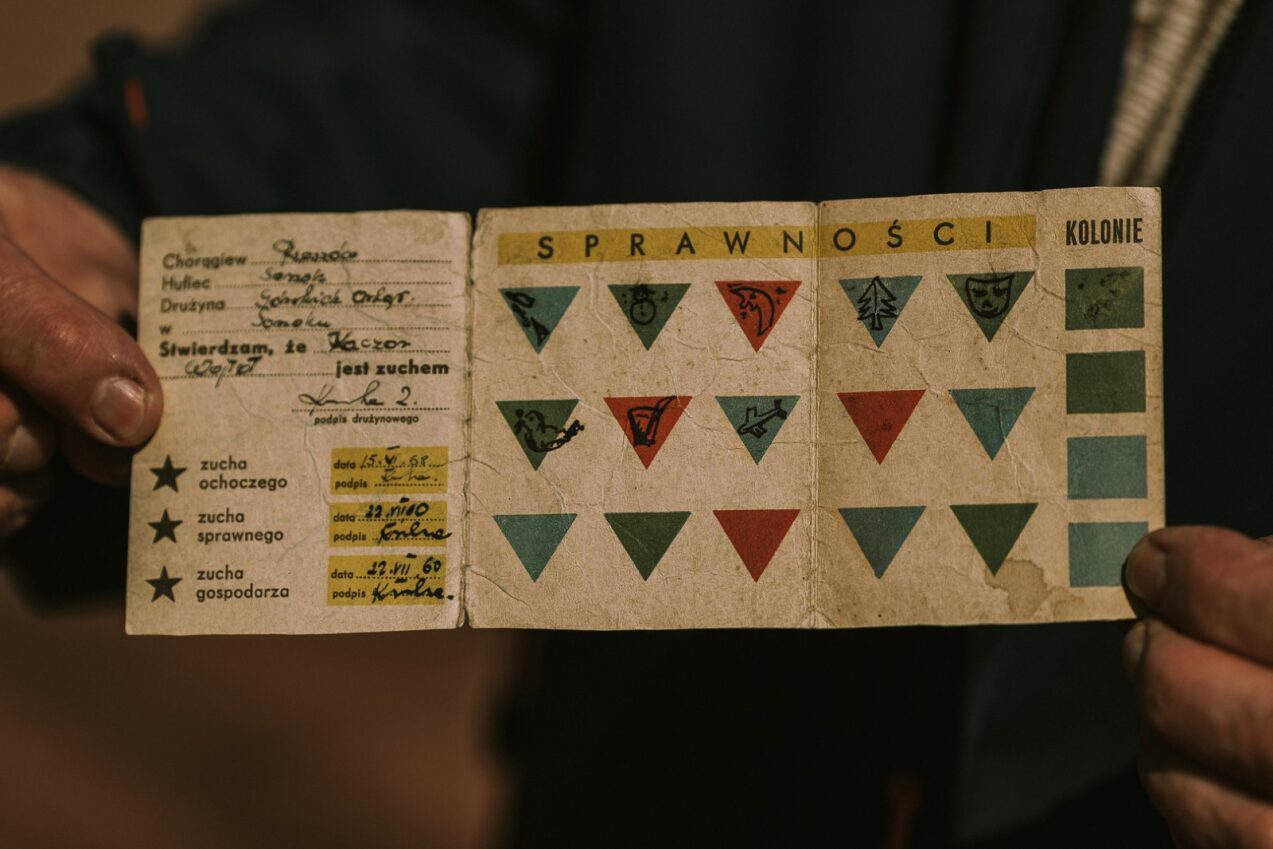 Chorągiew Rzeszów
Hufiec Sanok
Drużyna Górskich Orląt
w Sanoku
Stwierdzam, że Kaczor
jest zuchem
podpis drużynowego
zucha
ochoczego
data
podpis
zucha
sprawnego
data 22.VII 60
podpis
zucha
gospodarza
data 22.VII 60
podpis
SPRAWNOŚCI
KOLONIE